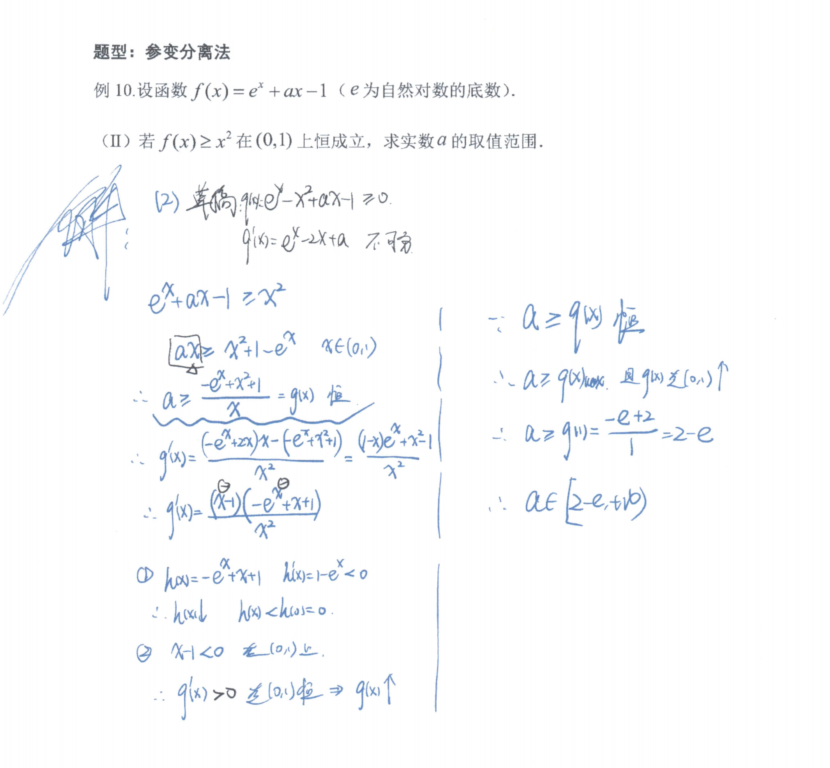 题型：参变分离法
例 10.设函数 f(x)=eˣ+ax−1（e为自然对数的底数）.
（II）若 f(x)≥x² 在(0,1)上恒成立，求实数a的取值范围.
解:
(2) 草稿:g(x)=eˣ-x²+ax-1≥0.
g'(x)=eˣ-2x+a 不可分
eˣ+ax-1≥x²
ax≥x²+1-eˣ x∈(0,1)
∴ a≥(-eˣ+x²+1)/x=g(x) 恒
∴ g'(x)=((-eˣ+2x)x-(-eˣ+x²+1))/x²=((1-x)eˣ+x²-1)/x²
∴ g'(x)=((x-1)(-eˣ+x+1))/x²
① h(x)=-eˣ+x+1 h'(x)=1-eˣ<0
∴ h(x)↓ h(x)<h(0)=0.
② x-1<0 在(0,1)上.
∴ g'(x)>0 在(0,1)恒⇒g(x)↑
∵ a≥g(x) 恒
∴ a≥g(x)max 且g(x)在(0,1)↑
∴ a≥g(1)=(-e+2)/1=2-e
∴ a∈[2-e,+∞)